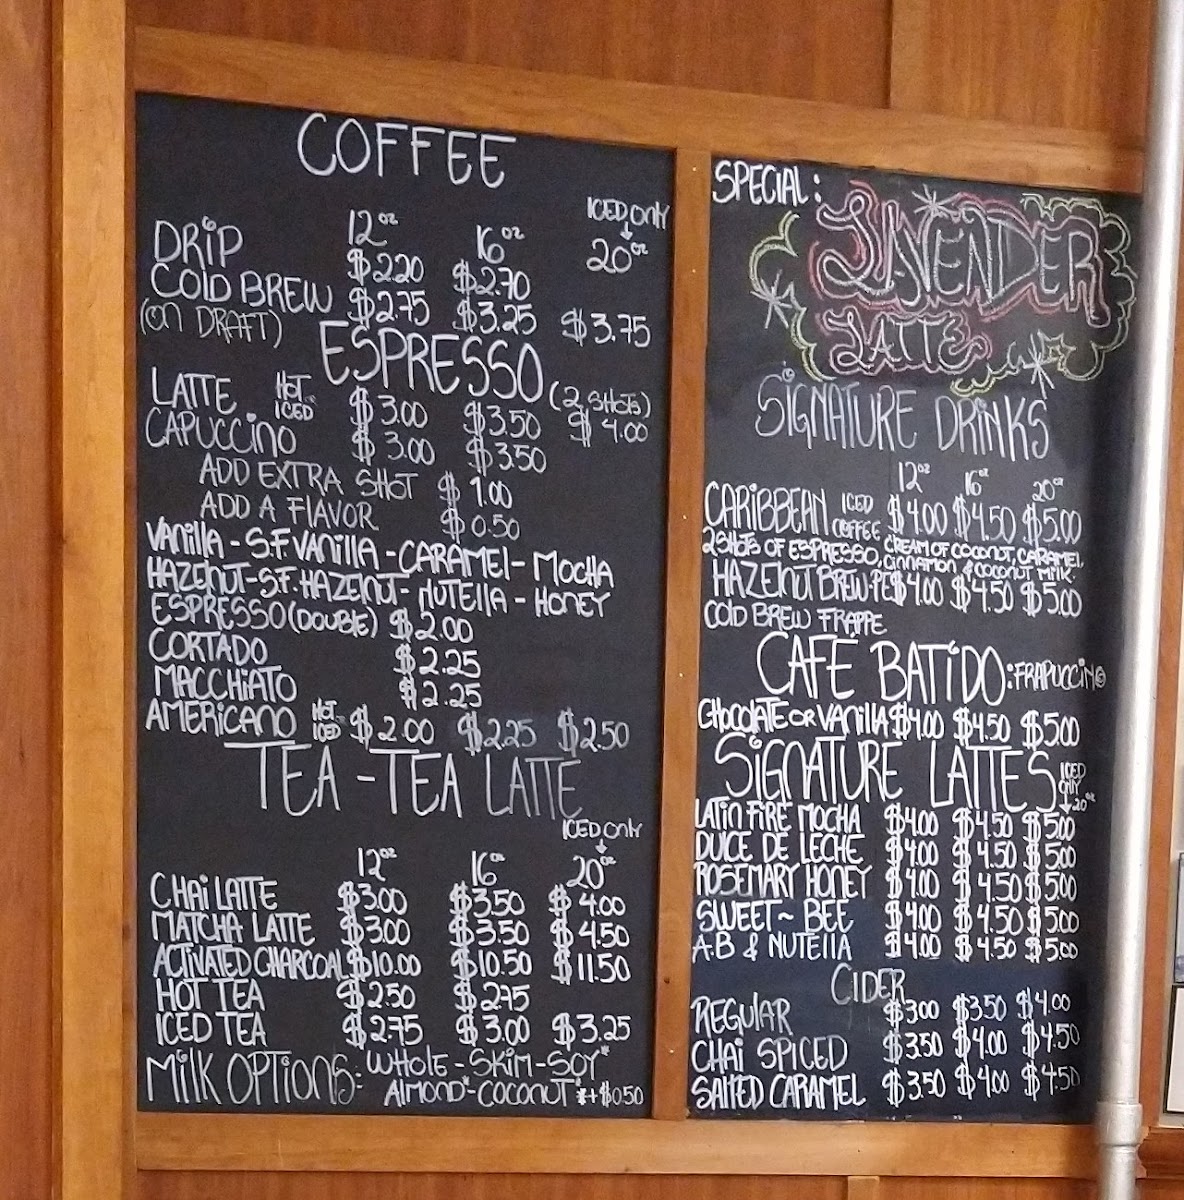 COFFEE
ICED ONLY
12oz 16oz 20oz
DRIP $2.20 $2.70
COLD BREW $2.75 $3.25 $3.75
(ON DRAFT)
ESPRESSO (2 SHOTS)
LATTE HOT OR ICED $3.00 $3.50 $4.00
CAPUCCINO $3.00 $3.50
ADD EXTRA SHOT $1.00
ADD A FLAVOR $0.50
VANILLA - S.F. VANILLA - CARAMEL - MOCHA
HAZELNUT - S.F. HAZELNUT - NUTELLA - HONEY
ESPRESSO (DOUBLE) $2.00
CORTADO $2.25
MACCHIATO $2.25
AMERICANO HOT OR ICED $2.00 $2.25 $2.50
TEA - TEA LATTE
ICED ONLY
12oz 16oz 20oz
CHAI LATTE $3.00 $3.50 $4.00
MATCHA LATTE $3.00 $3.50 $4.50
ACTIVATED CHARCOAL $10.00 $10.50 $11.50
HOT TEA $2.50 $2.75
ICED TEA $2.75 $3.00 $3.25
MILK OPTIONS: WHOLE - SKIM - SOY*
ALMOND* - COCONUT* *+$0.50
SPECIAL:
LAVENDER
LATTE
SIGNATURE DRINKS
12oz 16oz 20oz
CARIBBEAN ICED COFFEE $4.00 $4.50 $5.00
2 SHOTS OF ESPRESSO, CREAM OF COCONUT, CARAMEL,
CINNAMON & COCONUT MILK.
HAZELNUT BREW-PE $4.00 $4.50 $5.00
COLD BREW FRAPPE
CAFÉ BATIDO: FRAPUCCINO
CHOCOLATE OR VANILLA $4.00 $4.50 $5.00
SIGNATURE LATTES ICED ONLY 20oz
LATIN FIRE MOCHA $4.00 $4.50 $5.00
DULCE DE LECHE $4.00 $4.50 $5.00
ROSEMARY HONEY $4.00 $4.50 $5.00
SWEET ~ BEE $4.00 $4.50 $5.00
A.B & NUTELLA $4.00 $4.50 $5.00
CIDER
REGULAR $3.00 $3.50 $4.00
CHAI SPICED $3.50 $4.00 $4.50
SALTED CARAMEL $3.50 $4.00 $4.50